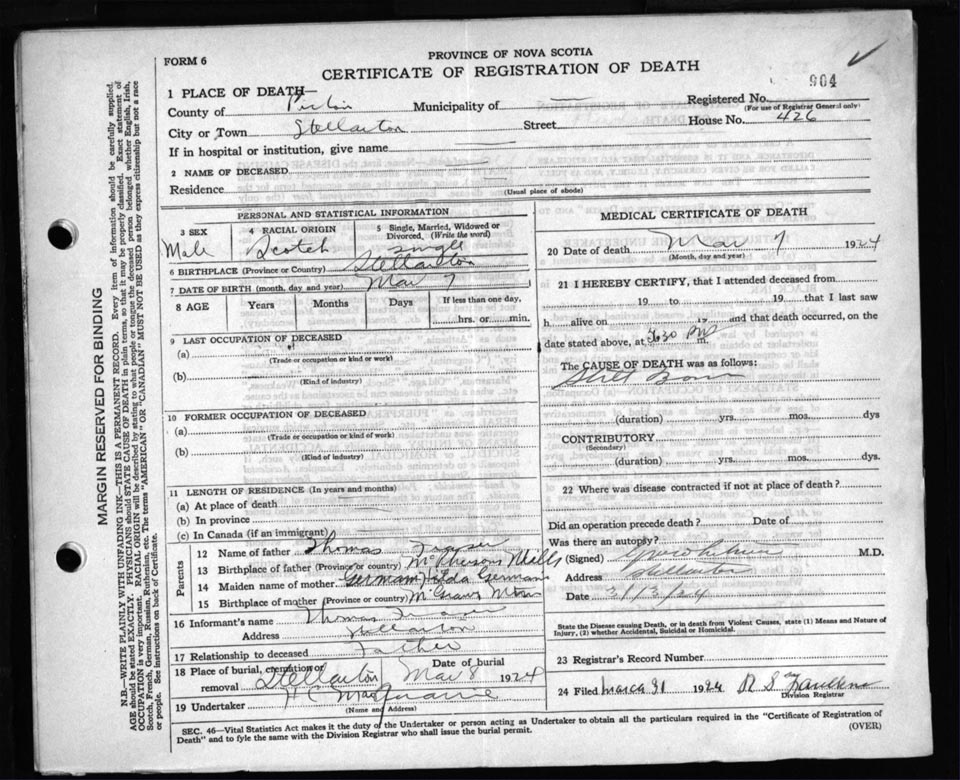 FORM 6
PROVINCE OF NOVA SCOTIA
CERTIFICATE OF REGISTRATION OF DEATH
904
1 PLACE OF DEATH—
Registered No.
(For use of Registrar General only)
County of Pictou Municipality of —
City or Town Stellarton Street House No. 426
If in hospital or institution, give name
2 NAME OF DECEASED
Residence
(Usual place of abode)
PERSONAL AND STATISTICAL INFORMATION
3 SEX 4 RACIAL ORIGIN 5 Single, Married, Widowed or Divorced. (Write the word)
Male Scotch Single
6 BIRTHPLACE (Province or Country) Stellarton
7 DATE OF BIRTH (month, day and year) Mar 7
8 AGE Years Months Days If less than one day,
hrs. or min.
9 LAST OCCUPATION OF DECEASED
(a)
(Trade or occupation or kind or work)
(b)
(Kind of industry)
10 FORMER OCCUPATION OF DECEASED
(a)
(Trade or occupation or kind of work)
(b)
(Kind of industry)
11 LENGTH OF RESIDENCE (In years and months)
(a) At place of death
(b) In province
(c) In Canada (if an immigrant)
Parents
12 Name of father Thomas Fraser
13 Birthplace of father (Province or country) McPhersons Mills
14 Maiden name of mother German Hilda German
15 Birthplace of mother (Province or country) McGraws
16 Informant's name Thomas Fraser
Address Stellarton
17 Relationship to deceased Father
18 Place of burial, cremation or removal Stellarton Date of burial Mar 8 1924
19 Undertaker H C MacQuarrie
(Name and Address)
MEDICAL CERTIFICATE OF DEATH
20 Date of death Mar 7 1924
(Month, day and year)
21 I HEREBY CERTIFY, that I attended deceased from
19 to 19 that I last saw
h alive on 19 and that death occurred, on the
date stated above, at 7:30 PM m.
The CAUSE OF DEATH was as follows:
Still Born
(duration) yrs. mos. dys
CONTRIBUTORY
(Secondary)
(duration) yrs. mos. dys.
22 Where was disease contracted if not at place of death?
Did an operation precede death? Date of
Was there an autopsy?
(Signed) M.D.
Address Stellarton
Date 3/13/24
State the Disease causing Death, or in death from Violent Causes, state (1) Means and Nature of Injury, (2) whether Accidental, Suicidal or Homicidal.
23 Registrar's Record Number
24 Filed March 31 1924 R S Faulkner
Division Registrar
SEC. 46—Vital Statistics Act makes it the duty of the Undertaker or person acting as Undertaker to obtain all the particulars required in the "Certificate of Registration of
Death" and to fyle the same with the Division Registrar who shall issue the burial permit.
(OVER)
MARGIN RESERVED FOR BINDING
N.B.—WRITE PLAINLY WITH UNFADING INK—THIS IS A PERMANENT RECORD. Every item of information should be carefully supplied.
AGE should be stated EXACTLY. PHYSICIANS should STATE CAUSE OF DEATH in plain terms, so that it may be properly classified. Exact statement of
OCCUPATION is very important. RACIAL ORIGIN will be described by stating to what people or tongue the deceased person belonged whether English, Irish,
Scotch, French, German, Russian, Ruthenian, etc. The terms "AMERICAN" OR "CANADIAN" MUST NOT BE USED as they express citizenship but not a race
or people. See instructions on back of Certificate.